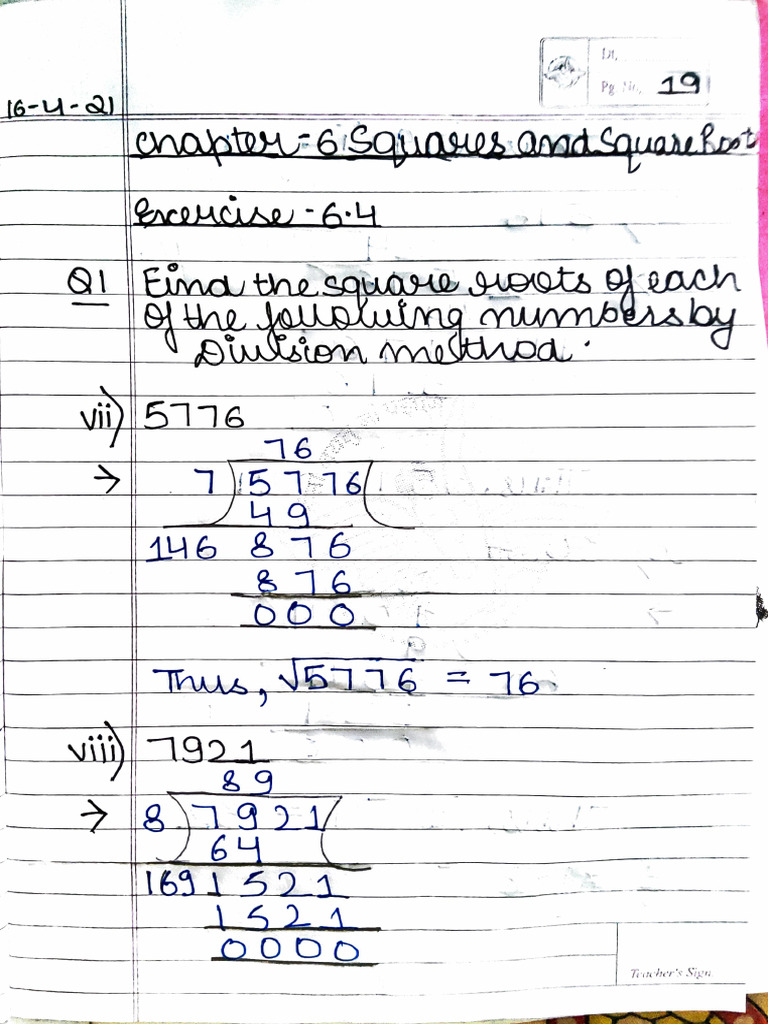 Dt.
Pg. No. 19
16-4-21
Chapter-6 Squares and Square Root
Exercise-6.4
Q1 Find the square roots of each
of the following numbers by
Division method.
vii) 5776
76
→ 7 5776
49
146 876
876
000
Thus, √5776 = 76.
viii) 7921
89
→ 8 7921
64
169 1521
1521
0000
Teacher's Sign